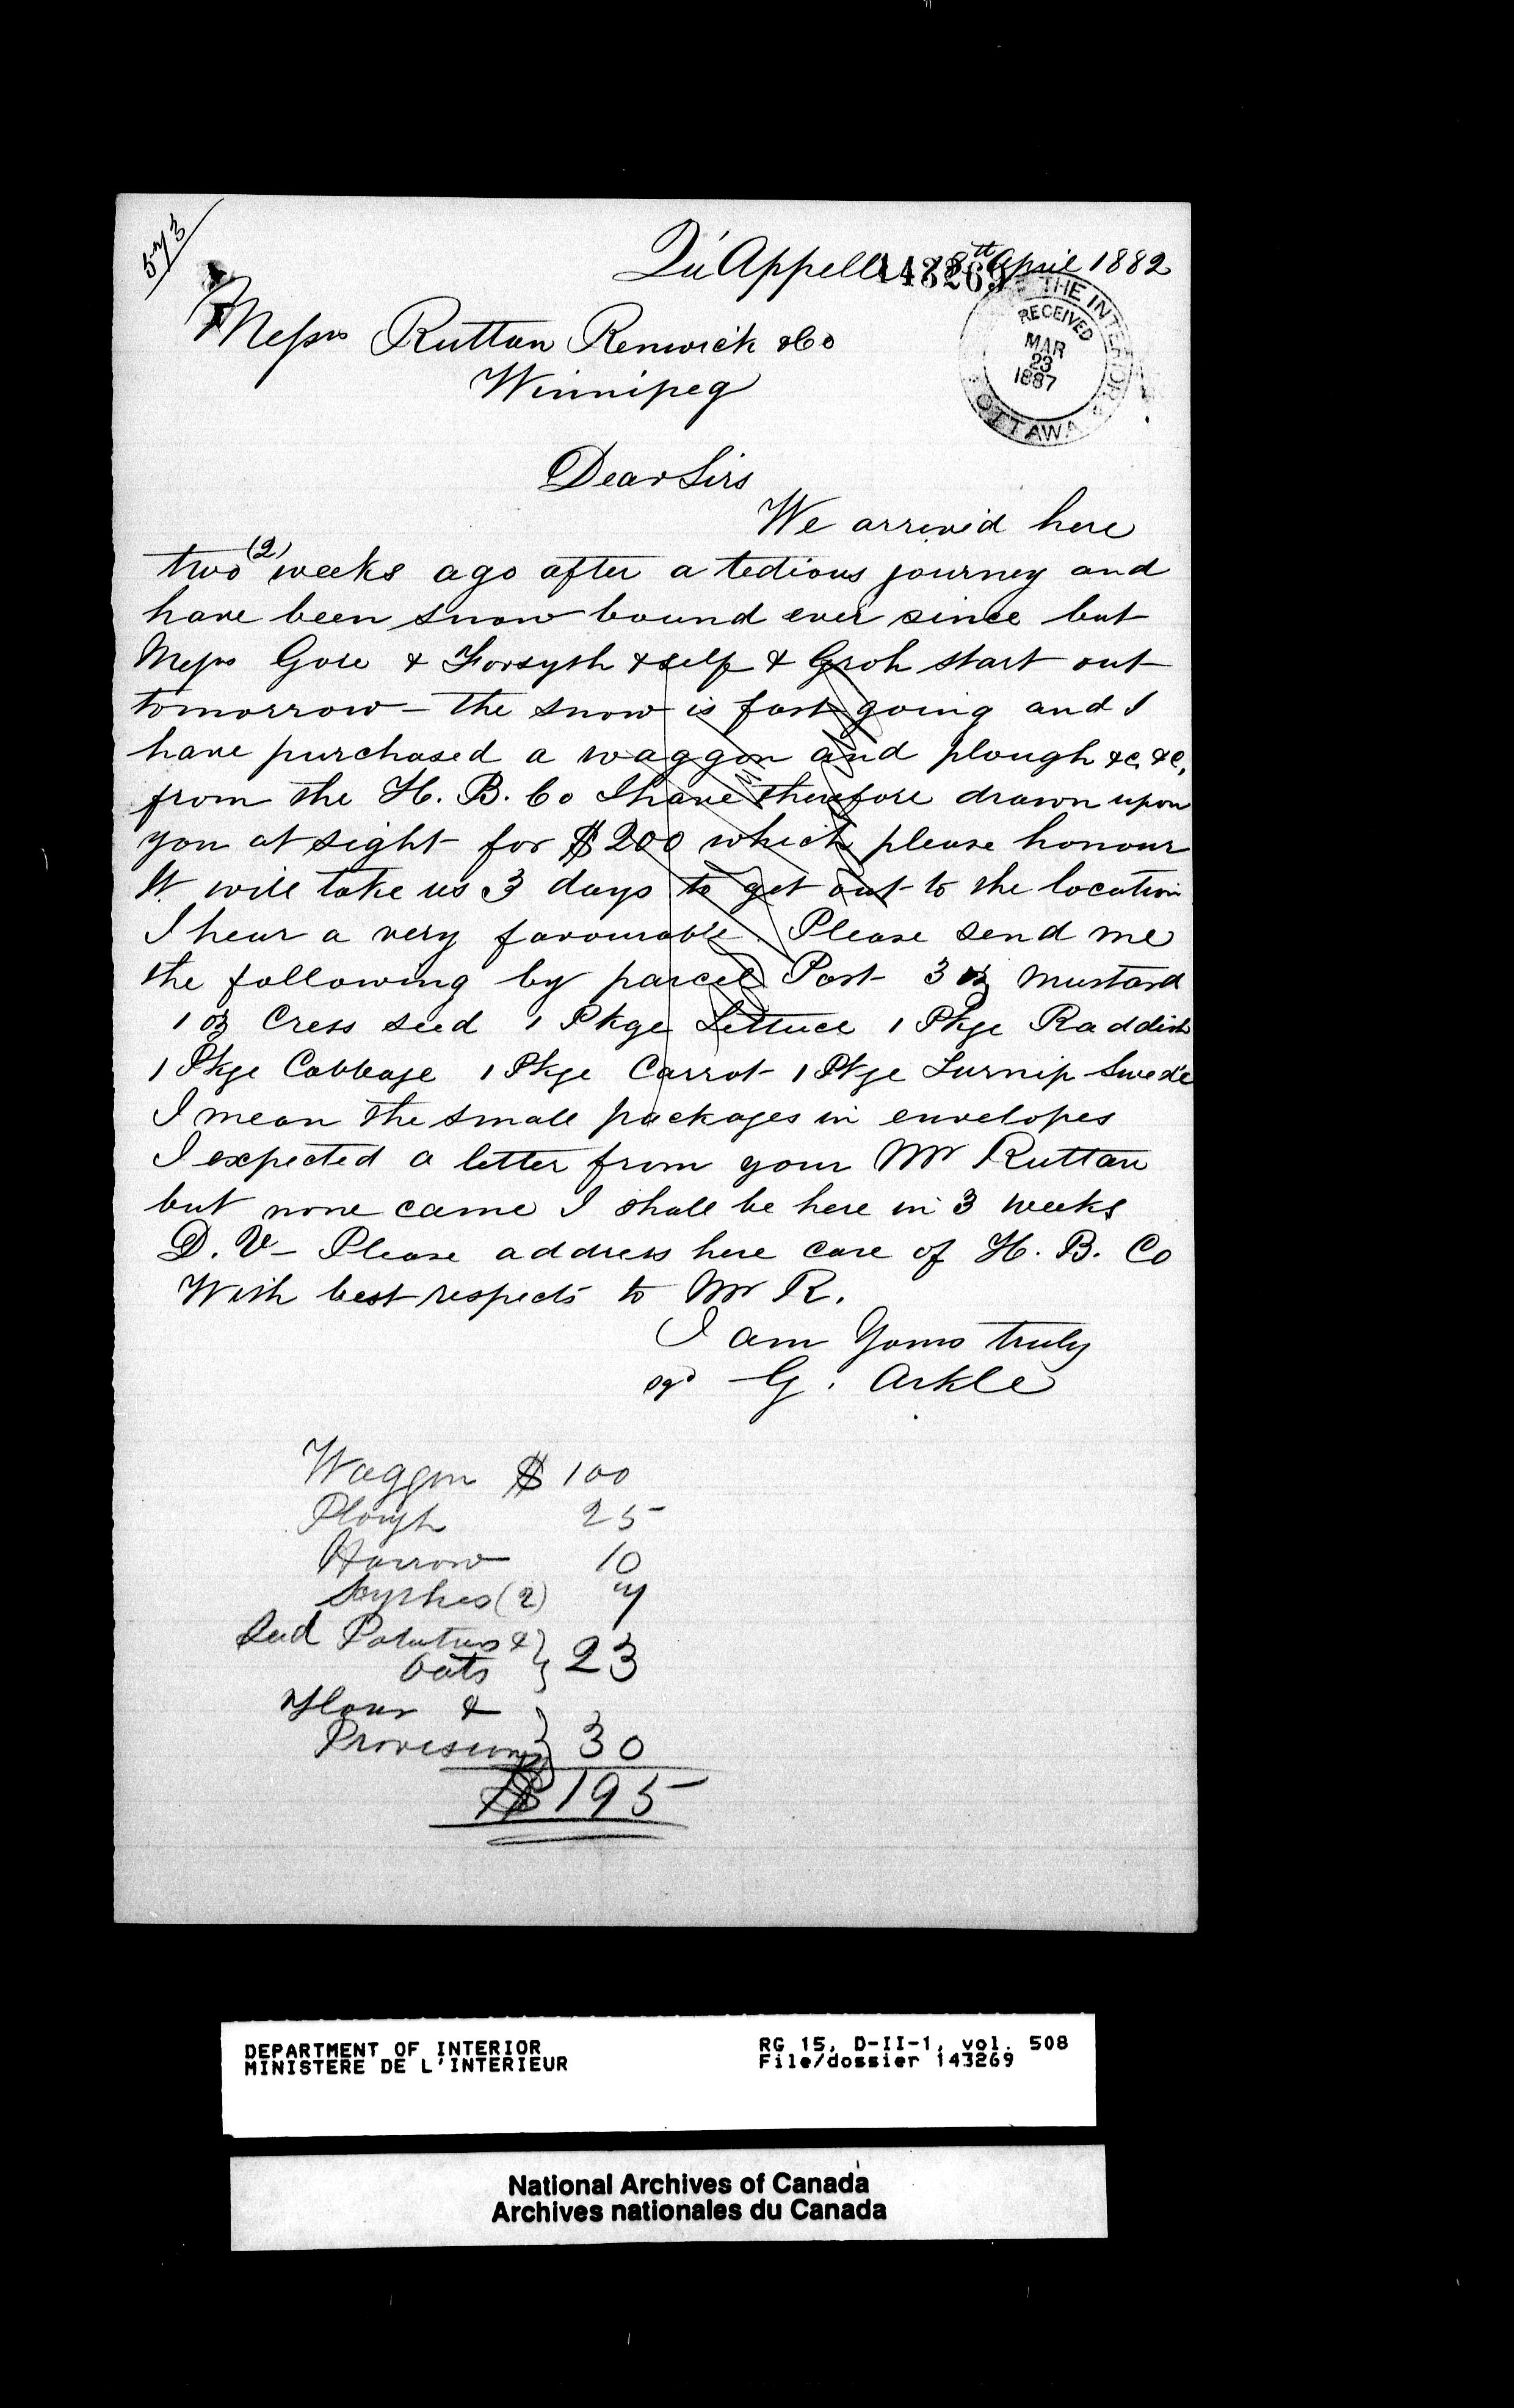 573
Qu'Appelle 18th April 1882
143269
Messrs Ruttan Renwick & Co
Winnipeg
THE INTERIOR
RECEIVED
MAR
23
1887
OTTAWA
Dear Sirs
We arrived here
two (2) weeks ago after a tedious journey and
have been snow bound ever since but
Messrs Gore & Forsyth & self & Groh start out
tomorrow - the snow is fast going and I
have purchased a waggon and plough &c. &c.
from the H. B. Co I have therefore drawn upon
you at sight for $200 which please honour
It will take us 3 days to get out to the location
I hear a very favourable. Please send me
the following by parcel Post 3 oz Mustard
1 oz Cress seed 1 Pkge Lettuce 1 Pkge Raddish
1 Pkge Cabbage 1 Pkge Carrot 1 Pkge Turnip Swede
I mean the small packages in envelopes
I expected a letter from your Mr Ruttan
but none came I shall be here in 3 weeks
D. V - Please address here care of H. B. Co
With best respects to Mr R.
I am Yours truly
sgd G. Arkle
Waggon $ 100
Plough 25
Harrow 10
Scythes (2) 7
Seed Potatoes &
Oats } 23
Flour &
Provisions } 30
$195
DEPARTMENT OF INTERIOR
MINISTERE DE L'INTERIEUR
RG 15, D-II-1, vol. 508
File/dossier 143269
National Archives of Canada
Archives nationales du Canada